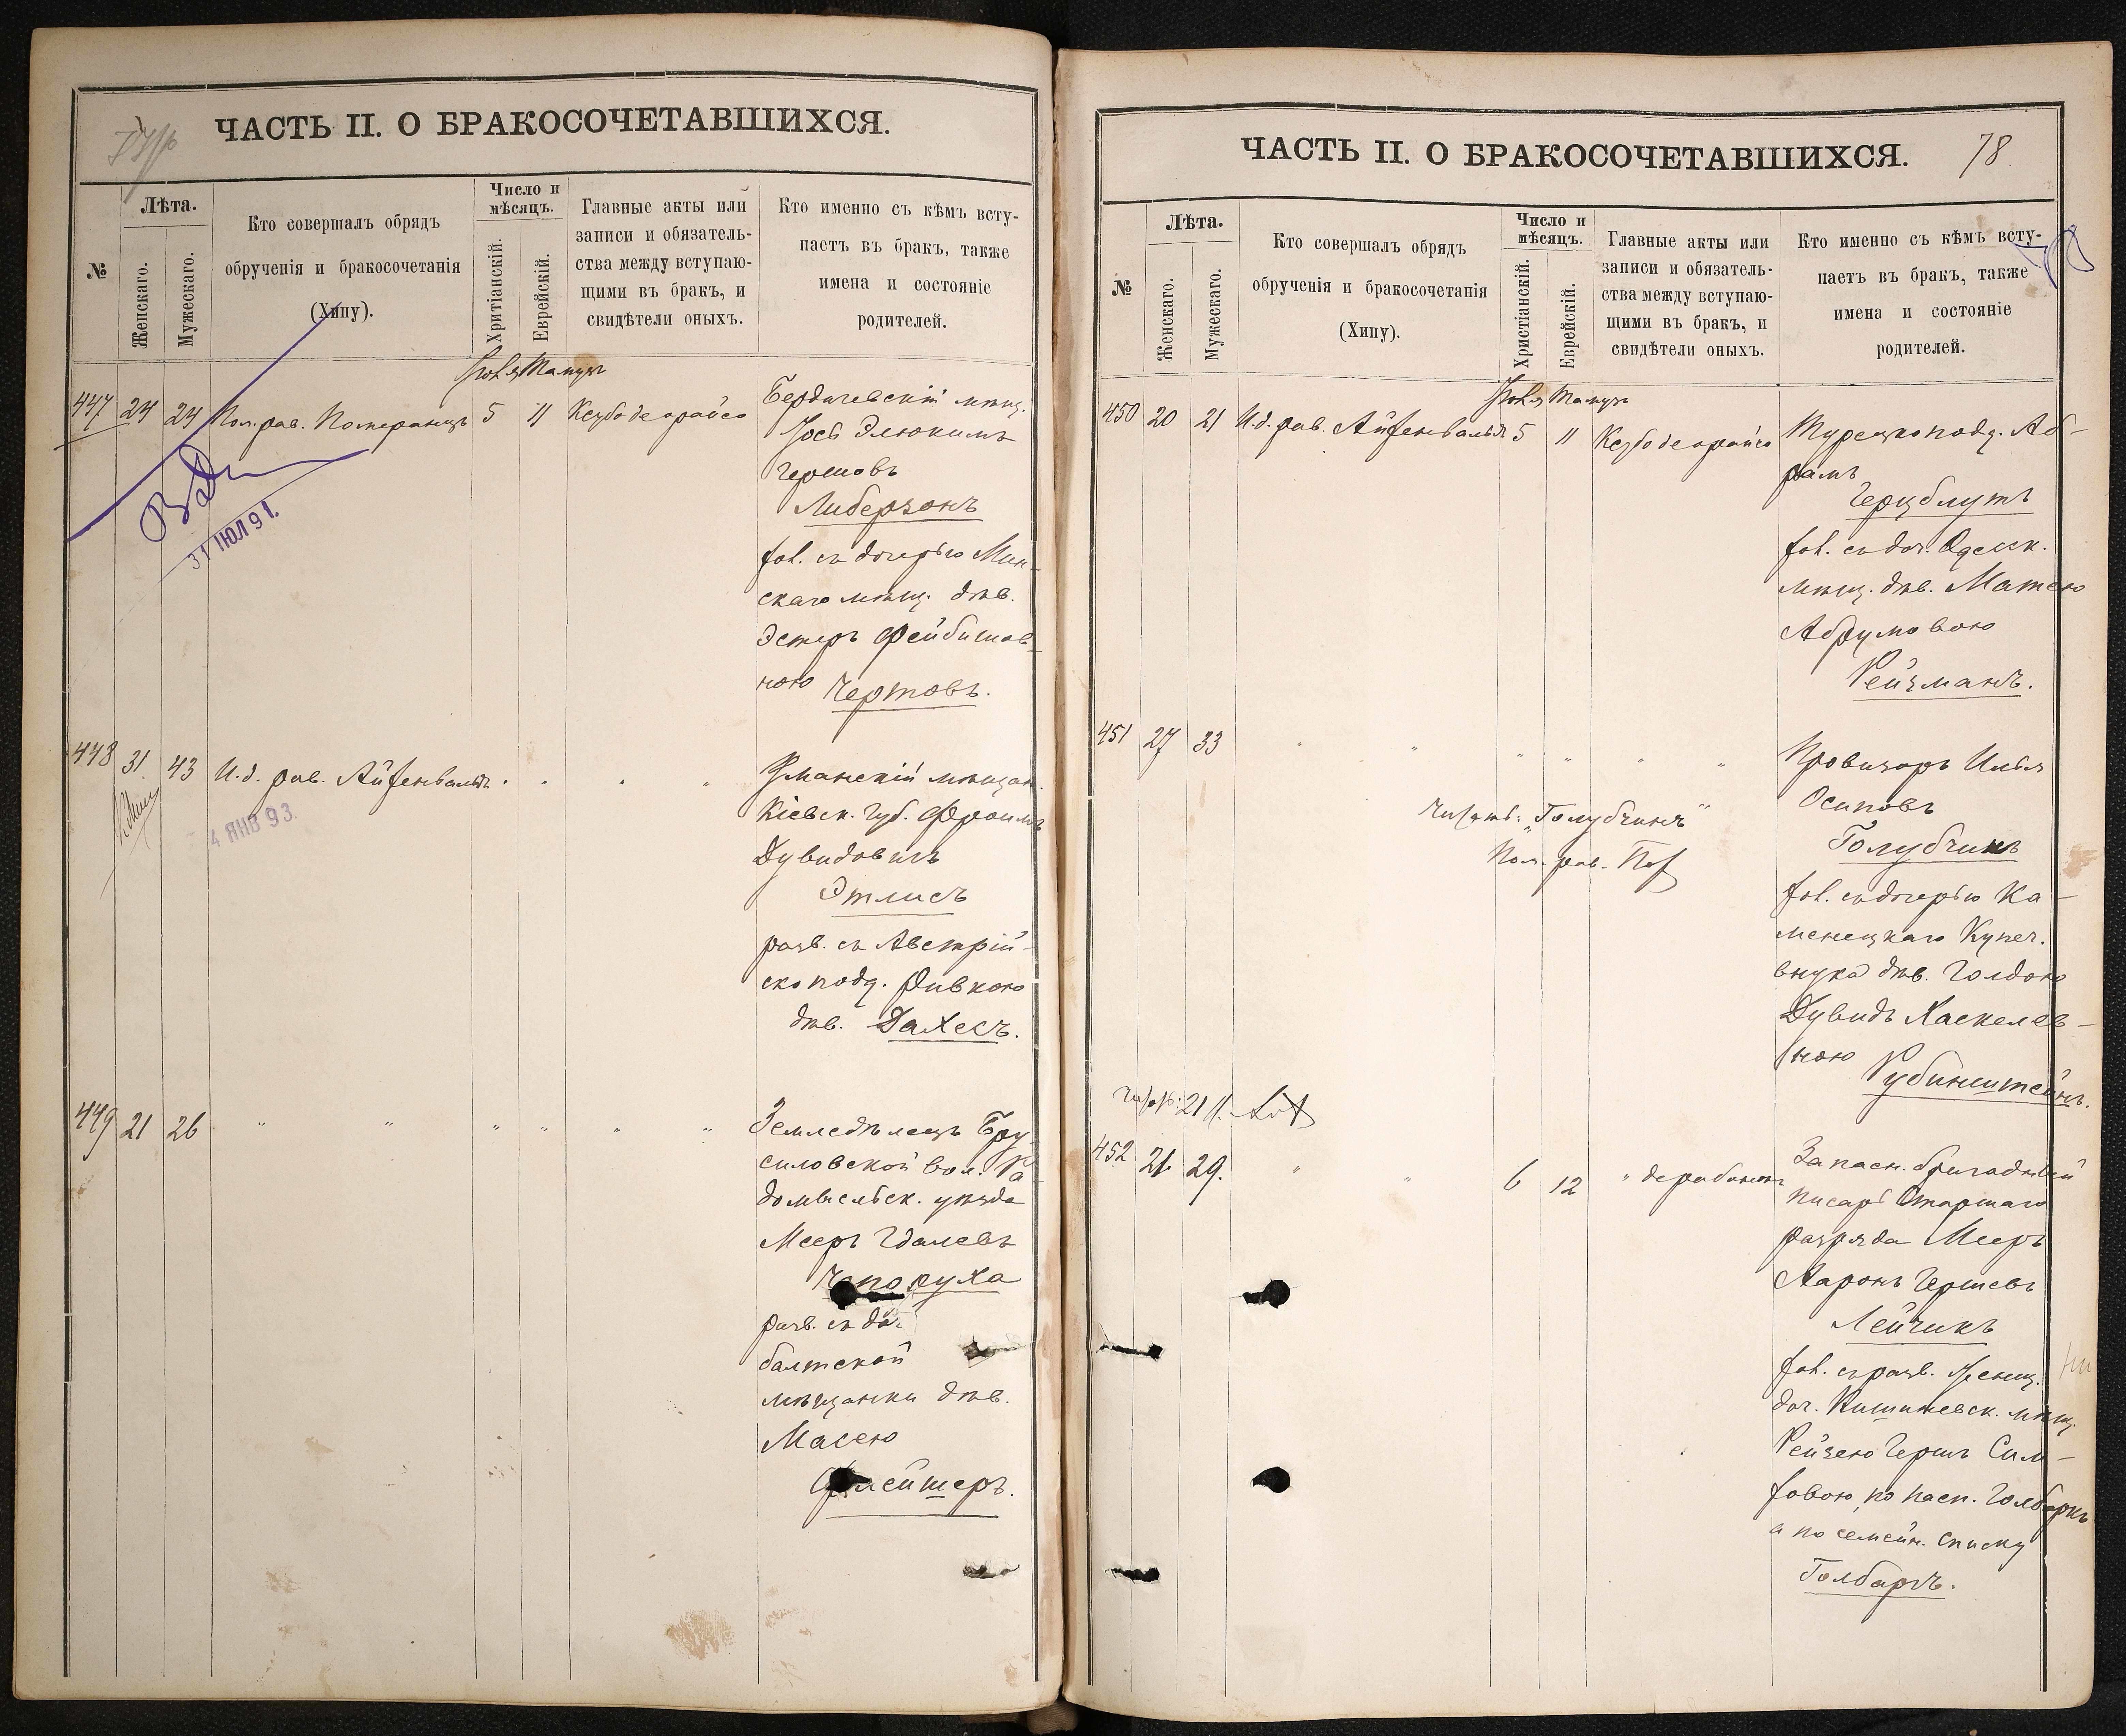 ЧАСТЬ II. О БРАКОСОЧЕТАВШИХСЯ.
№
Лѣта.
Женскаго.
Мужескаго.
Кто совершалъ обрядъ
обрученія и бракосочетанія
(Хипу).
Число и
мѣсяцъ.
Хритіанскій.
Еврейскій.
Главные акты или
записи и обязатель-
ства между вступаю-
щими въ бракъ, и
свидѣтели оныхъ.
Кто именно съ кѣмъ всту-
паетъ въ бракъ, также
имена и состояніе
родителей.
Іюля Тамузъ
447 24 24 Пом. рав. Померанцъ 5 11 Ксубо деорайсо
Бердичевскій мѣщ.
Іосъ Элюкимъ
Гершовъ
Либерзонъ
хол. съ дочерью Мин-
скаго мѣщ. дѣв.
Эстеръ Фейбишов-
ною Чертовъ.
31 ІЮЛ 91.
448 31 43 И. д. рав. Айзенвальдъ " " " "
4 ЯНВ 93.
Уманскій мѣщан.
Кіевск. губ. Фроимъ
Дувидовичъ
Этлисъ
разв. съ Австрій-
ско подд. Ривкою
дѣв. Дахесъ.
449 21 26 " " " " " "
Земледѣлецъ Бру-
силовской вол. Ра-
домысльск. уѣзда
Мееръ Гдалевъ
Чепоруха
разв. съ доч.
балтской
мѣщанки дѣв.
Масею
Флейшеръ.
ЧАСТЬ II. О БРАКОСОЧЕТАВШИХСЯ. 78
№
Лѣта.
Женскаго.
Мужескаго.
Кто совершалъ обрядъ
обрученія и бракосочетанія
(Хипу).
Число и
мѣсяцъ.
Христіанскій.
Еврейскій.
Главные акты или
записи и обязатель-
ства между вступаю-
щими въ бракъ, и
свидѣтели оныхъ.
Кто именно съ кѣмъ всту-
паетъ въ бракъ, также
имена и состояніе
родителей.
Іюля Тамузъ
450 20 21 И. д. рав. Айзенвальдъ 5 11 Ксубо деорайсо
Турецко подд. Аб-
рамъ
Герцблутъ
хол. съ доч. Одесск.
мѣщ. дѣв. Матею
Абрумовою
Рейзманъ.
451 27 33 " " " " " "
Провизоръ Илья
Осиповъ
Голубчикъ
хол. съ дочерью Ка-
менецкаго Купеч.
внука дѣв. Голдою
Дувидъ Хаскелев-
ною Рубинштейнъ.
"Голубчикъ"
Пом. рав.
452 21 29. " " 6 12 " дерабонон
Запасн. бригадный
писарь Старшаго
разряда Мееръ
Ааронъ Гершевъ
Лейчикъ
хол. съ разв. женщ.
доч. Кишиневск. мѣщ.
Рейзею Гершъ Сим-
ховою, по пасп. Голбаркъ
а по семейн. списку
Голбартъ.